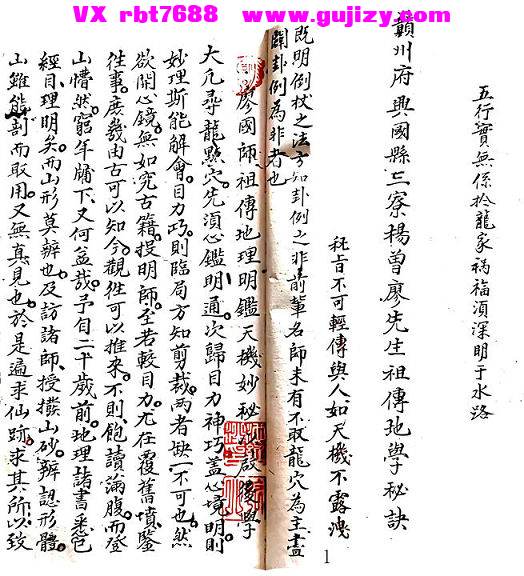 VX rbt7688 www.gujizy.com
五行實無係於龍家禍福須深明于水路
秘旨不可輕傳與人如天機不露洩
贛州府興國縣三寮楊曾廖先生祖傳地學秘訣
既明倒杖之法方知卦例之非前輩名師未有不取龍穴為主盡
闢卦例為非者也
廖國師祖傳地理明鑑天機妙秘 後學
大凡尋龍點穴先須心鑑明通次歸目力神巧盖心境明則
妙理斯能解會目力巧則臨局方知剪裁两者缺一不可也然
欲開心鏡無如究古籍投明師至若較目力尤在覆舊墳鑒
徃事庶幾由古可以知今觀徃可以推来不則飽讀滿腹而登
山懵然窮年牖下又何益哉予自二十歲前地理諸書悉包
經目理明矣而山形莫辨也及訪諸師授撥山砂辨認形體
山雖能剖而取用又無真見也於是遍求仙跡求其所以致
1